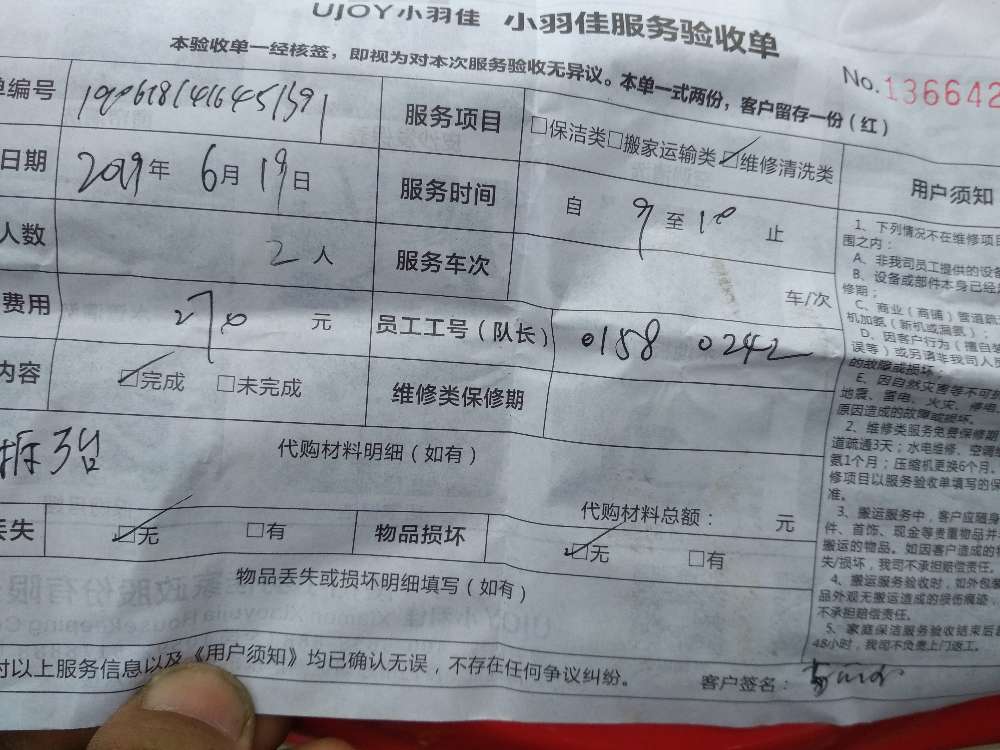 UJOY小羽佳 小羽佳服务验收单
本验收单一经核签，即视为对本次服务验收无异议。本单一式两份，客户留存一份（红）
No.136642
单编号 服务项目 □保洁类□搬家运输类☑维修清洗类
日期 2019年 6月 19日 服务时间 自 9 至 10 止
人数 2人 服务车次 车/次
费用 270 元 员工工号（队长） 0158 0242
内容 ☑完成 □未完成 维修类保修期
拆3台 代购材料明细（如有）
代购材料总额： 元
丢失 ☑无 □有 物品损坏 ☑无 □有
物品丢失或损坏明细填写（如有）
对以上服务信息以及《用户须知》均已确认无误，不存在任何争议纠纷。
客户签名：
用户须知
1、下列情况不在维修项目
围之内：
A、非我司员工提供的设备
B、设备或部件本身已经
修期；
C、商业（商铺）管道疏
机加氨（新机或漏氨）
D、因客户行为（擅自装
误等）或另请非我司人员
的故障或损坏；
E、因自然灾害等不可抗
地震、雷电、火灾、停电
原因造成的故障或损坏。
2、维修类服务免费保修期
道疏通3天；水电维修、空调
氨1个月；压缩机更换6个月、
修项目以服务验收单填写的保
准。
3、搬运服务中，客户应随身
件、首饰、现金等贵重物品并
搬运的物品。如因客户造成的
失/损坏，我司不承担赔偿责任。
4、搬运服务验收时，如外包装
品外观无搬运造成的损伤痕迹，
不承担赔偿责任。
5、家庭保洁服务验收结束后
48小时，我司不负责上门返工。